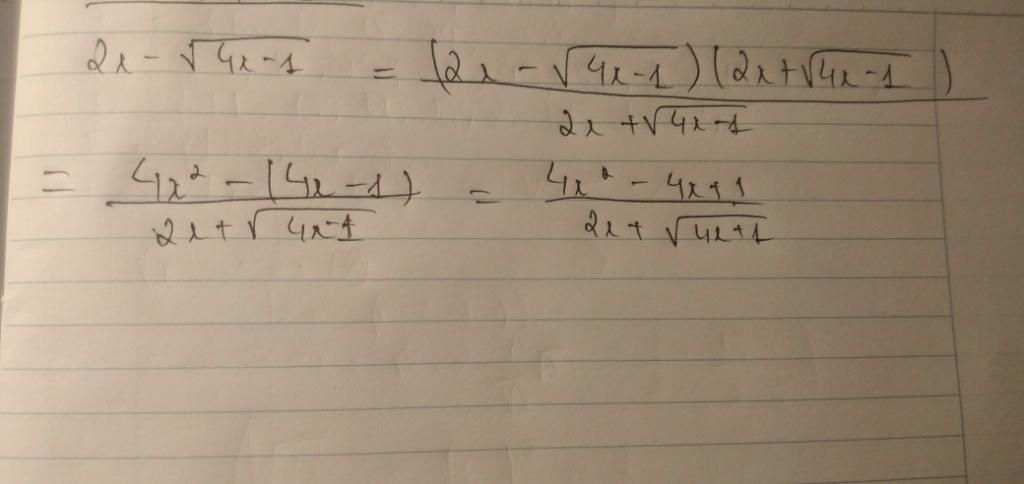 2x - √(4x-1) = (2x - √(4x-1))(2x + √(4x-1)) / 2x + √(4x-1)
= 4x² - (4x - 1) / 2x + √(4x-1) = 4x² - 4x + 1 / 2x + √(4x+1)